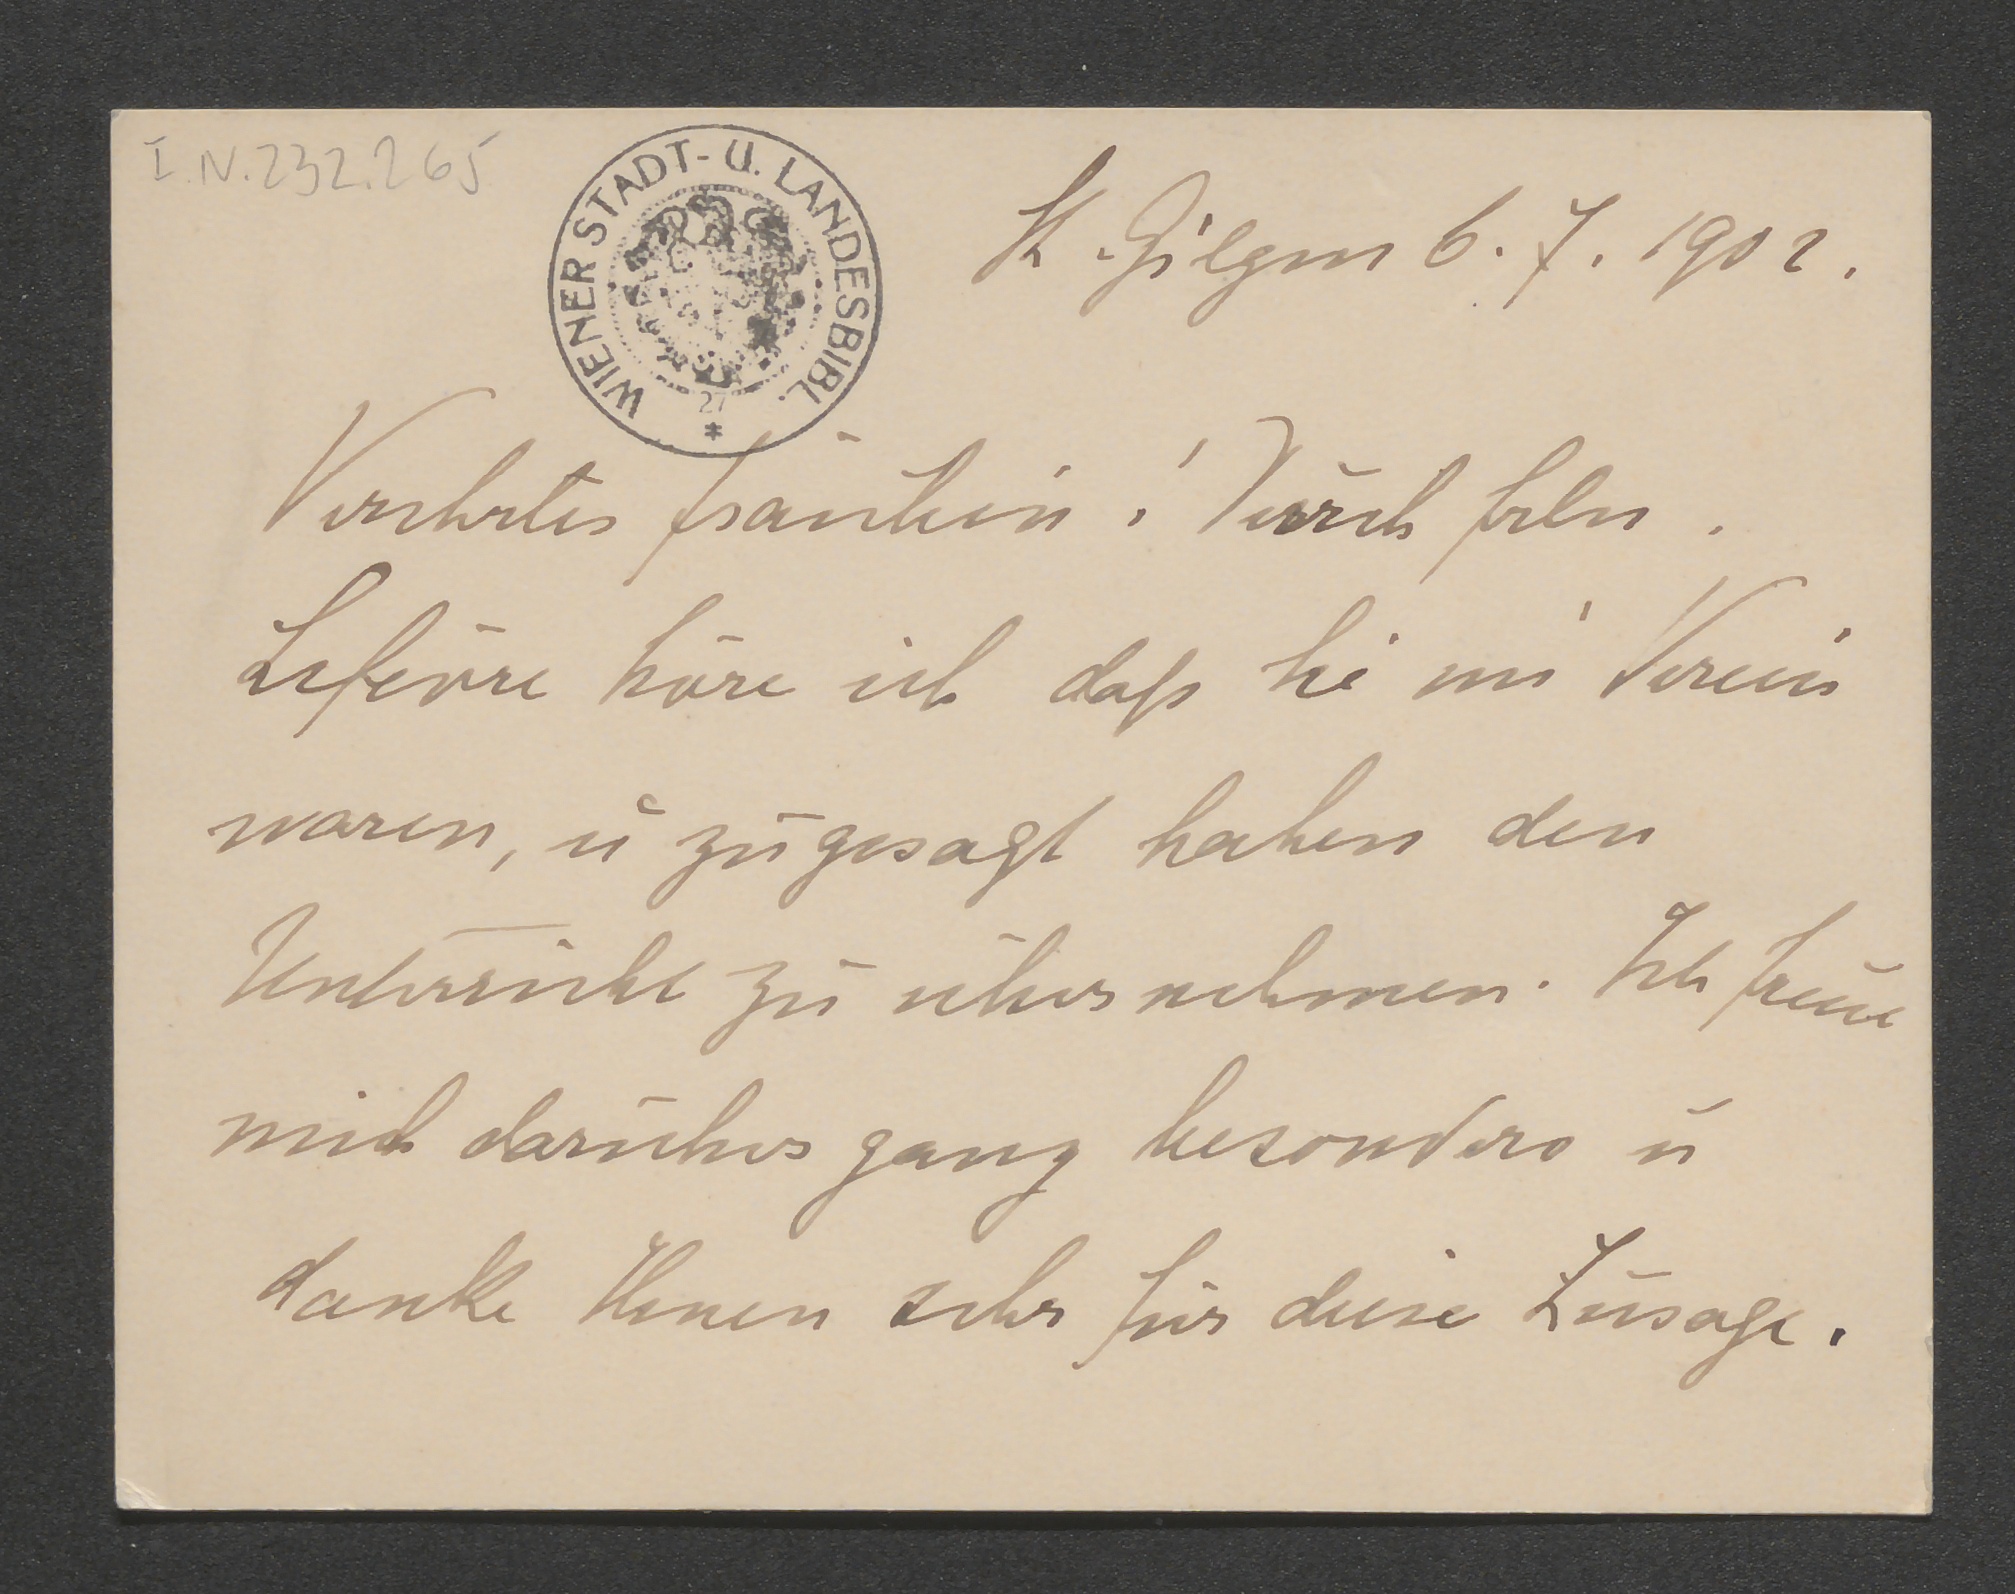 I.N.232.265
WIENER STADT- U. LANDESBIBL.
27
St. Gilgen 6. 7. 1902.
Verehrtes Fräulein! Durch Frln.
Lefèvre höre ich daß Sie im Verein
waren, u zugesagt haben den
Unterricht zu übernehmen. Ich freue
mich darüber ganz besonders u
danke Ihnen sehr für diese Zusage.